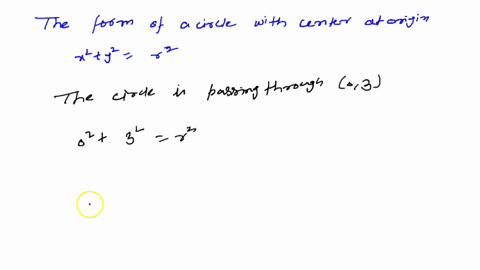 The form of a circle with center at origin
x² + y² = r²
The circle is passing through (0,3)
0² + 3² = r²